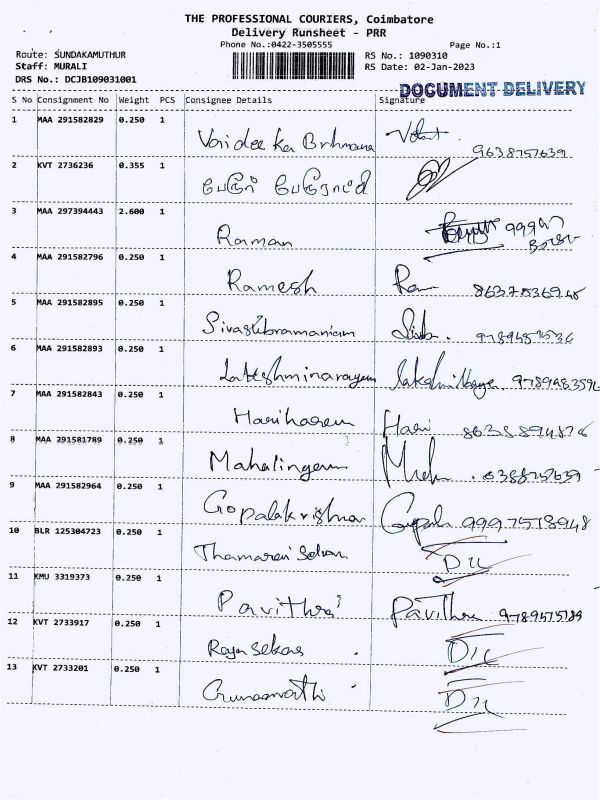 THE PROFESSIONAL COURIERS, Coimbatore
Delivery Runsheet - PRR
Phone No.:0422-3505555 Page No.:1
Route: SUNDAKAMUTHUR RS No.: 1090310
Staff: MURALI RS Date: 02-Jan-2023
DRS No.: DCJB109031001
DOCUMENT DELIVERY
S No Consignment No Weight PCS Consignee Details Signature
1 MAA 291582829 0.250 1
Vaideeka Brhmana 9638757639
2 KVT 2736236 0.355 1
பேரூர் பேரூராட்சி
3 MAA 297394443 2.600 1
Raman
4 MAA 291582796 0.250 1
Ramesh Ram
5 MAA 291582895 0.250 1
Sivasubramaniam Siva
6 MAA 291582893 0.250 1
Lakshminarayan
7 MAA 291582843 0.250 1
Hariharan Hari
8 MAA 291581789 0.250 1
Mahalingam
9 MAA 291582964 0.250 1
Gopalakrishna Gopal 9997578948
10 BLR 125304723 0.250 1
Thamarai Selvan D/L
11 KMU 3319373 0.250 1
Pavithra Pavithra
12 KVT 2733917 0.250 1
Rajasekar D/L
13 KVT 2733201 0.250 1
Gunaavathi D/L